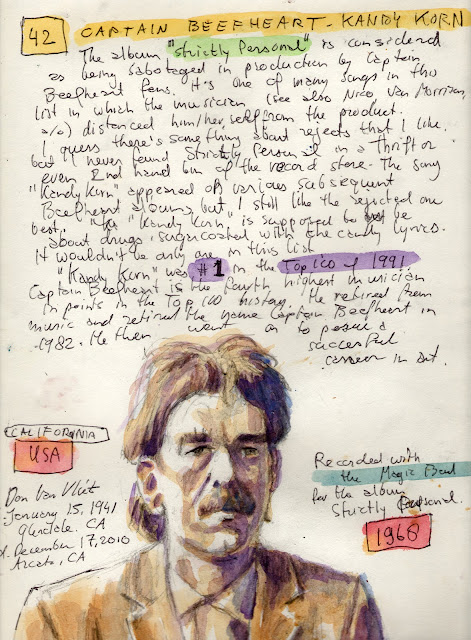 42 CAPTAIN BEEFHEART - KANDY KORN
The album "Strictly Personal" is considered
as being sabotaged in production by Captain
Beefheart fens. It's one of many songs in this
list in which the musician (see also Nico Van Morrison,
a/o) distanced him/her self from the product.
I guess there's something about rejects that I like.
but I never found Strictly Personal in a Thrift or
even 2nd hand bin of the record store. The song
"Kandy Korn" appeared on various subsequent
Beefheart albums, but I still like the rejected one
best. "Kandy Korn" is supposed to not be
about drugs, sugarcoated with the candy lyrics.
It wouldn't be only one in this list
"Kandy Korn" was #1 in the Top 100 of 1991
Captain Beefheart is the fourth highest musician
in points in the Top 100 history. He retired from
music and retired the name Captain Beefheart in
1982. He then went on to pesue a
succesful
career in art.
CALIFORNIA
USA
Don Van Vliet
January 15, 1941
Glendale, CA
d. December 17, 2010
Arcata, CA
Recorded with
the Magic Band
for the album
Strictly Personal
1968